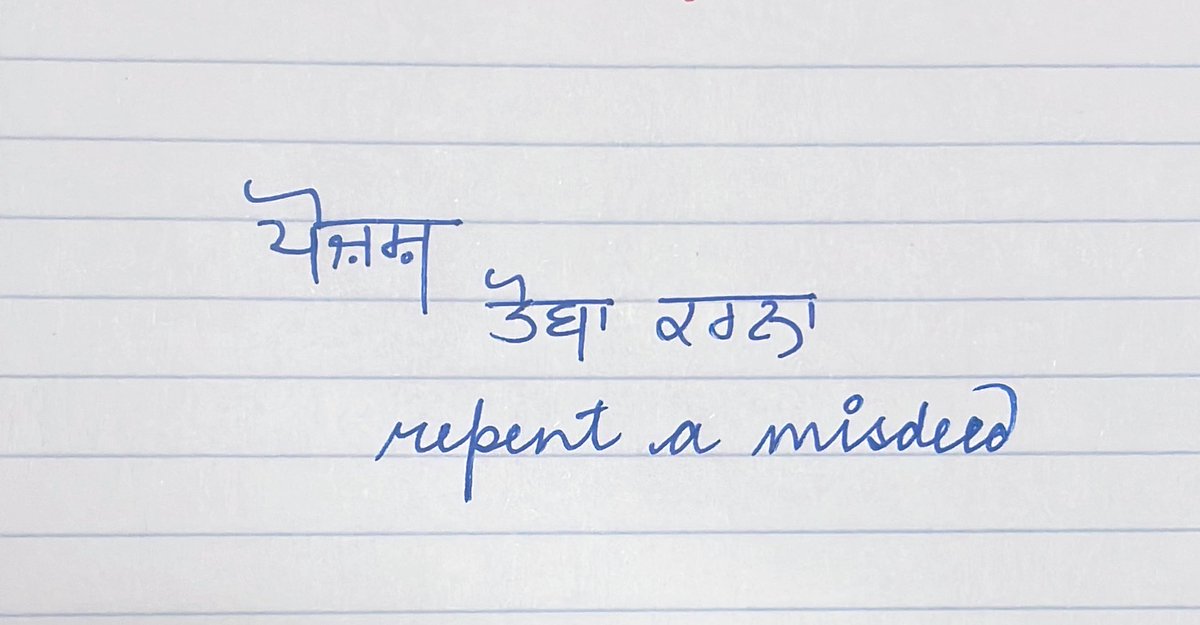 ਪੋਜ਼ਸ਼
ਤੋਬਾ ਕਰਨਾ
repent a misdeed